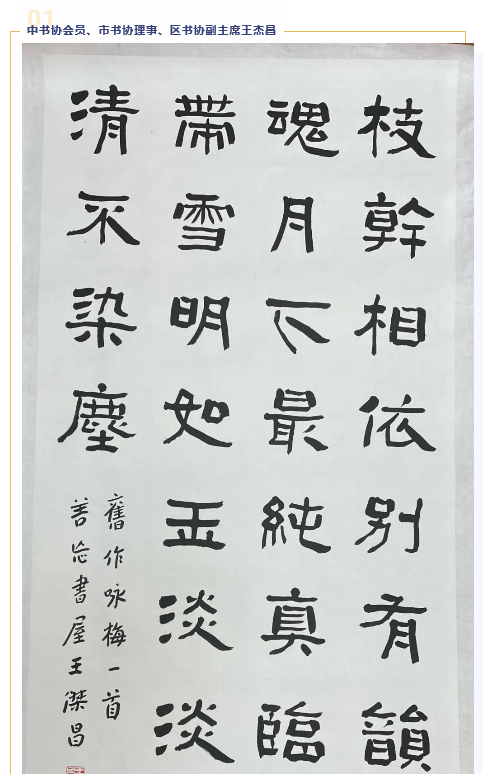 01
中书协会员、市书协理事、区书协副主席王杰昌
枝幹相依别有韻
魂月下最純真臨
帶雪明如玉淡淡
清不染塵
舊作咏梅一首
善忘書屋王傑昌